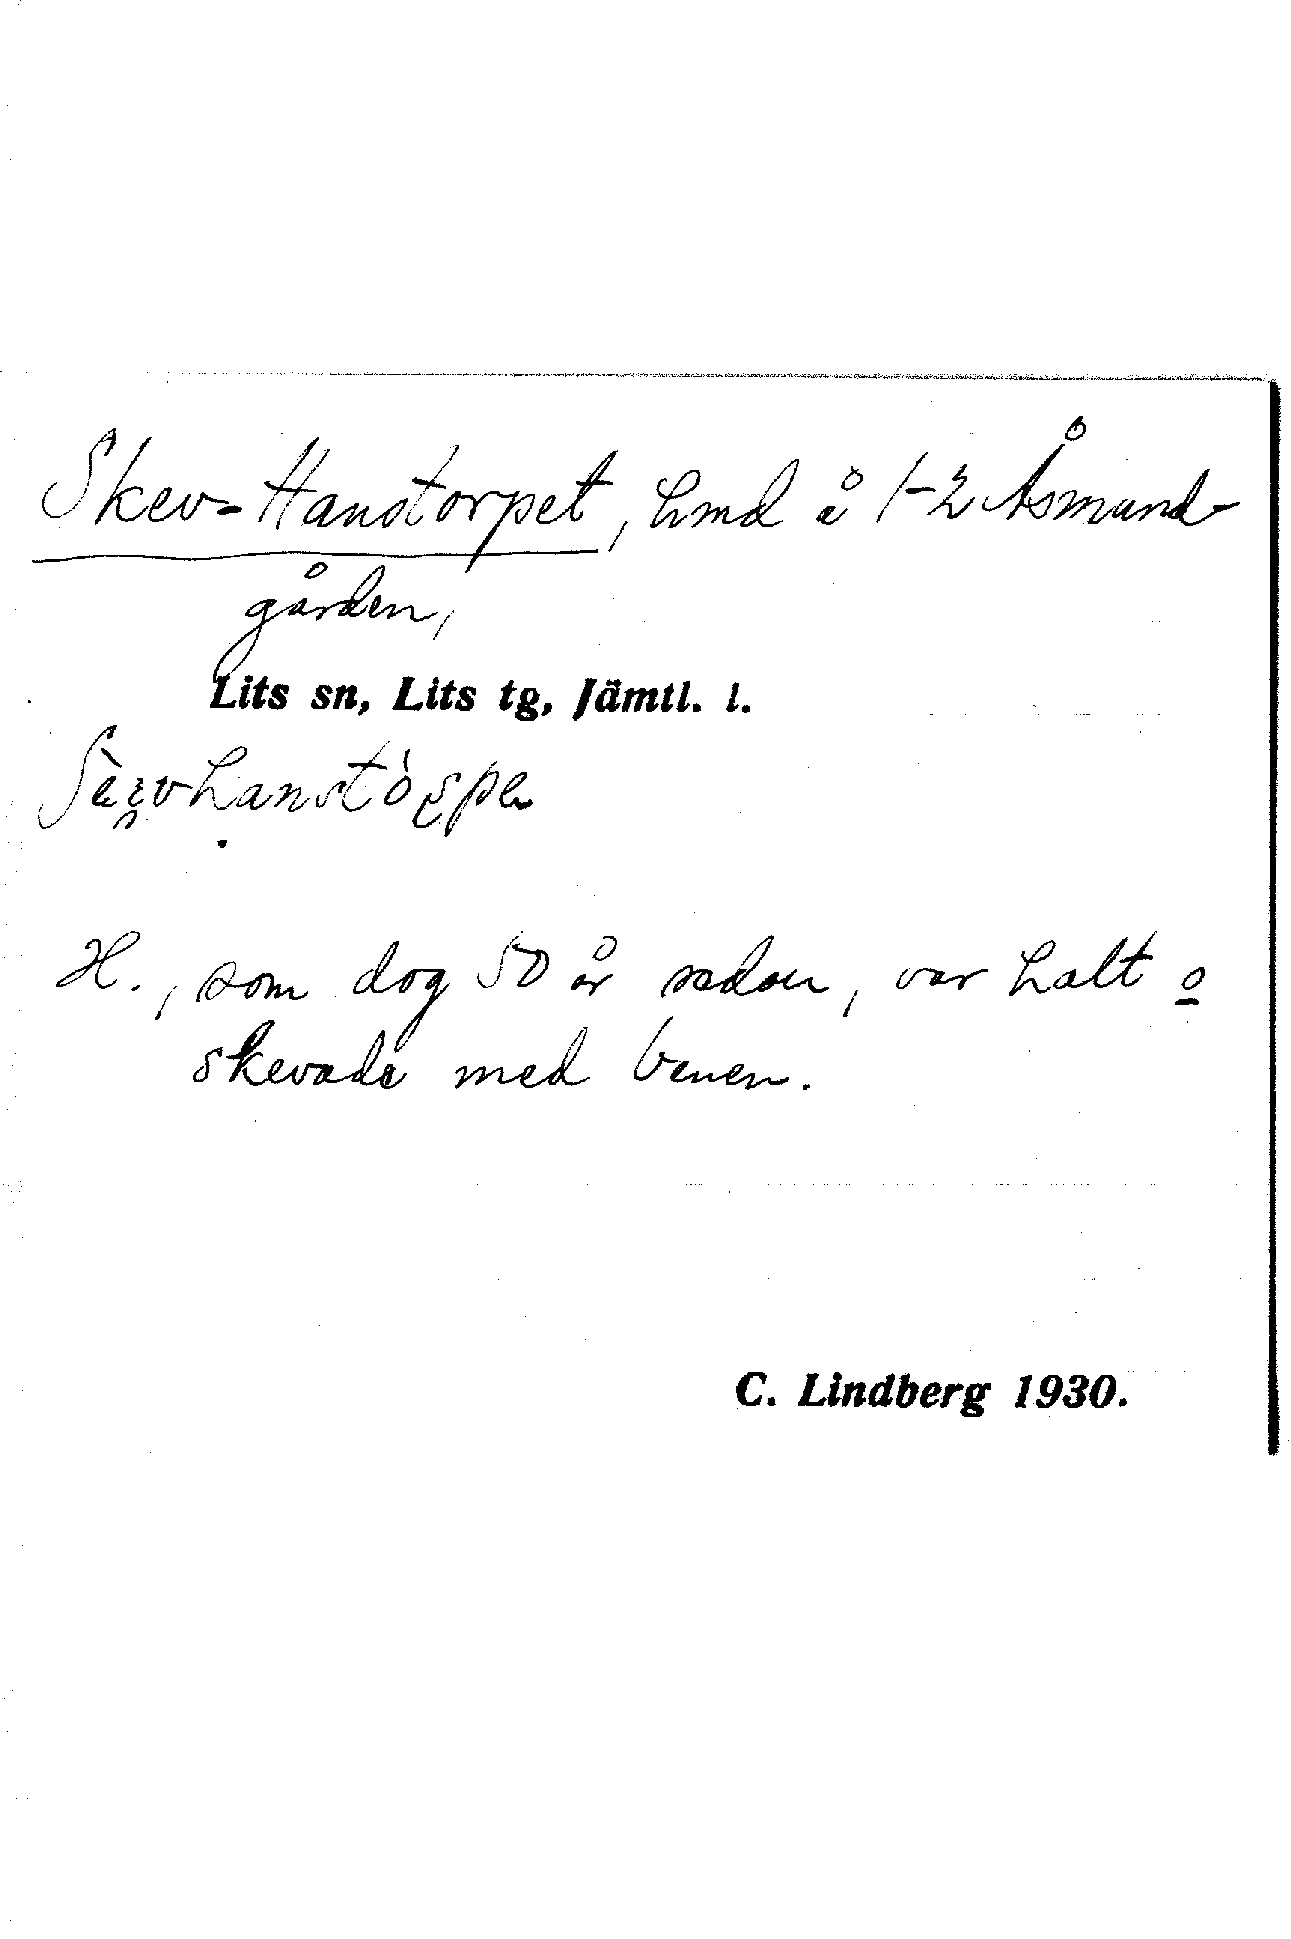 Skev-Hanstorpet, hmd å 1-2 Åsmund-
gården,
Lits sn, Lits tg, Jämtl. l.
H., som dog 50 år sedan, var halt o
skevade med benen.
C. Lindberg 1930.